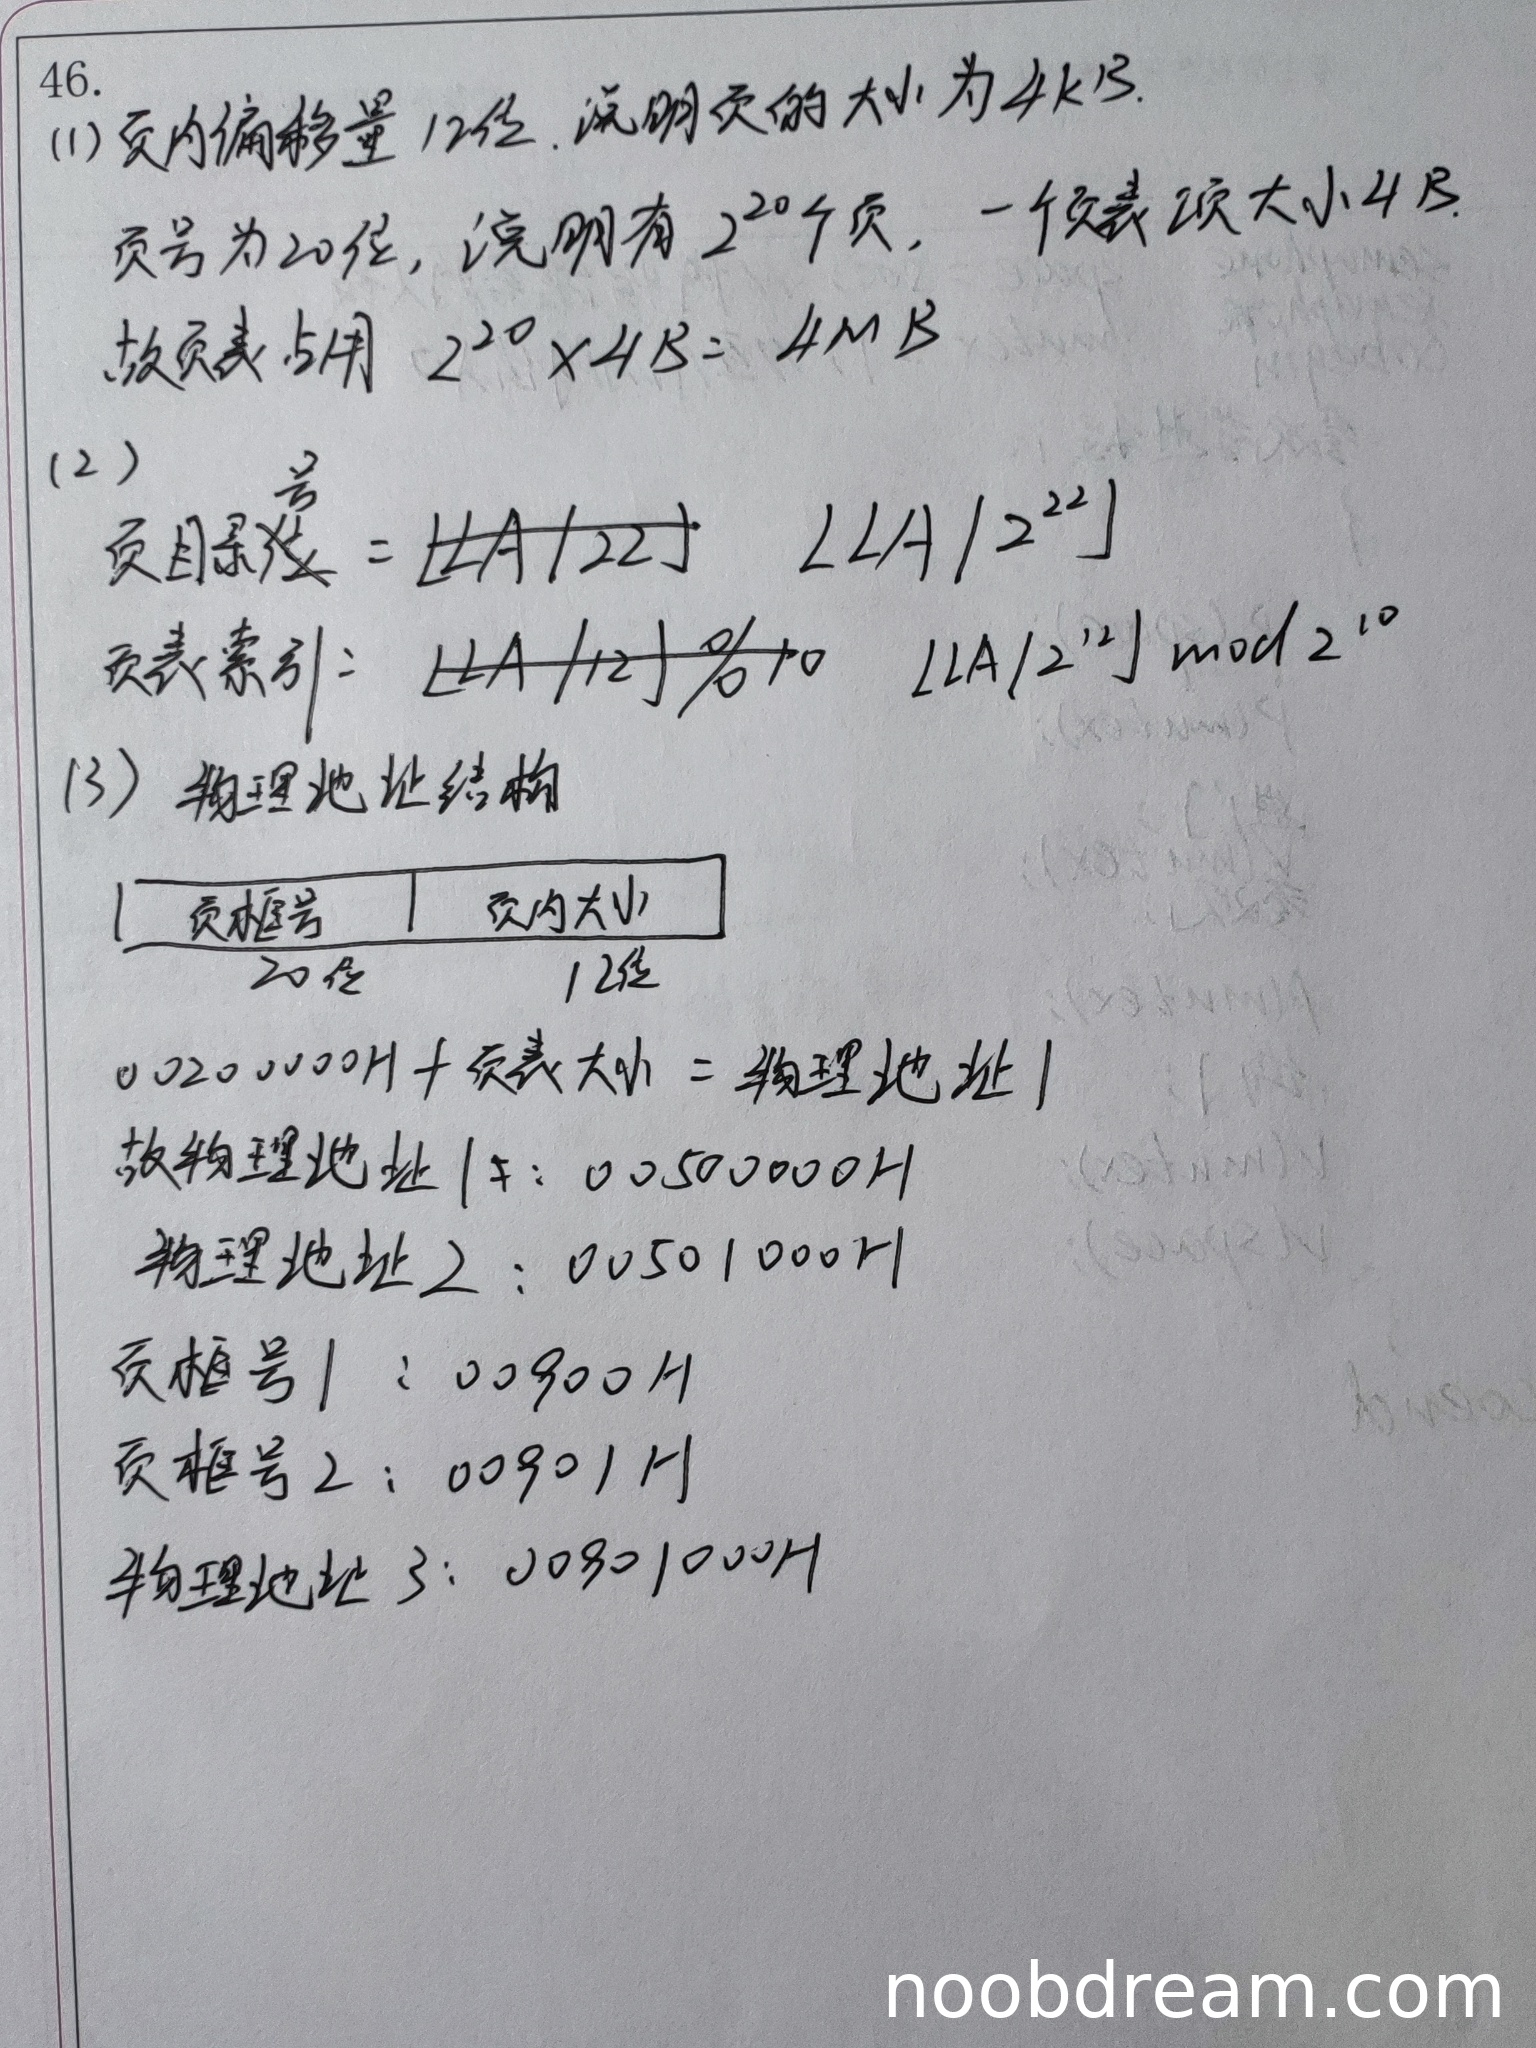 46.
(1) 页内偏移量12位.说明页的大小为4KB.
页号为20位,说明有2^20个页,一个页表项大小4B.
故页表占用 2^20×4B= 4MB
(2)
页目录号 = ⌊LA/22⌋ ⌊LA/2^22⌋
页表索引= ⌊LA/12⌋%10 ⌊LA/2^12⌋ mod 2^10
(3) 物理地址结构
页框号 页内大小
20位 12位
00200000H+页表大小=物理地址1
故物理地址1: 00500000H
物理地址2: 00501000H
页框号1: 00900H
页框号2: 00901H
物理地址3: 00901000H
noobdream.com